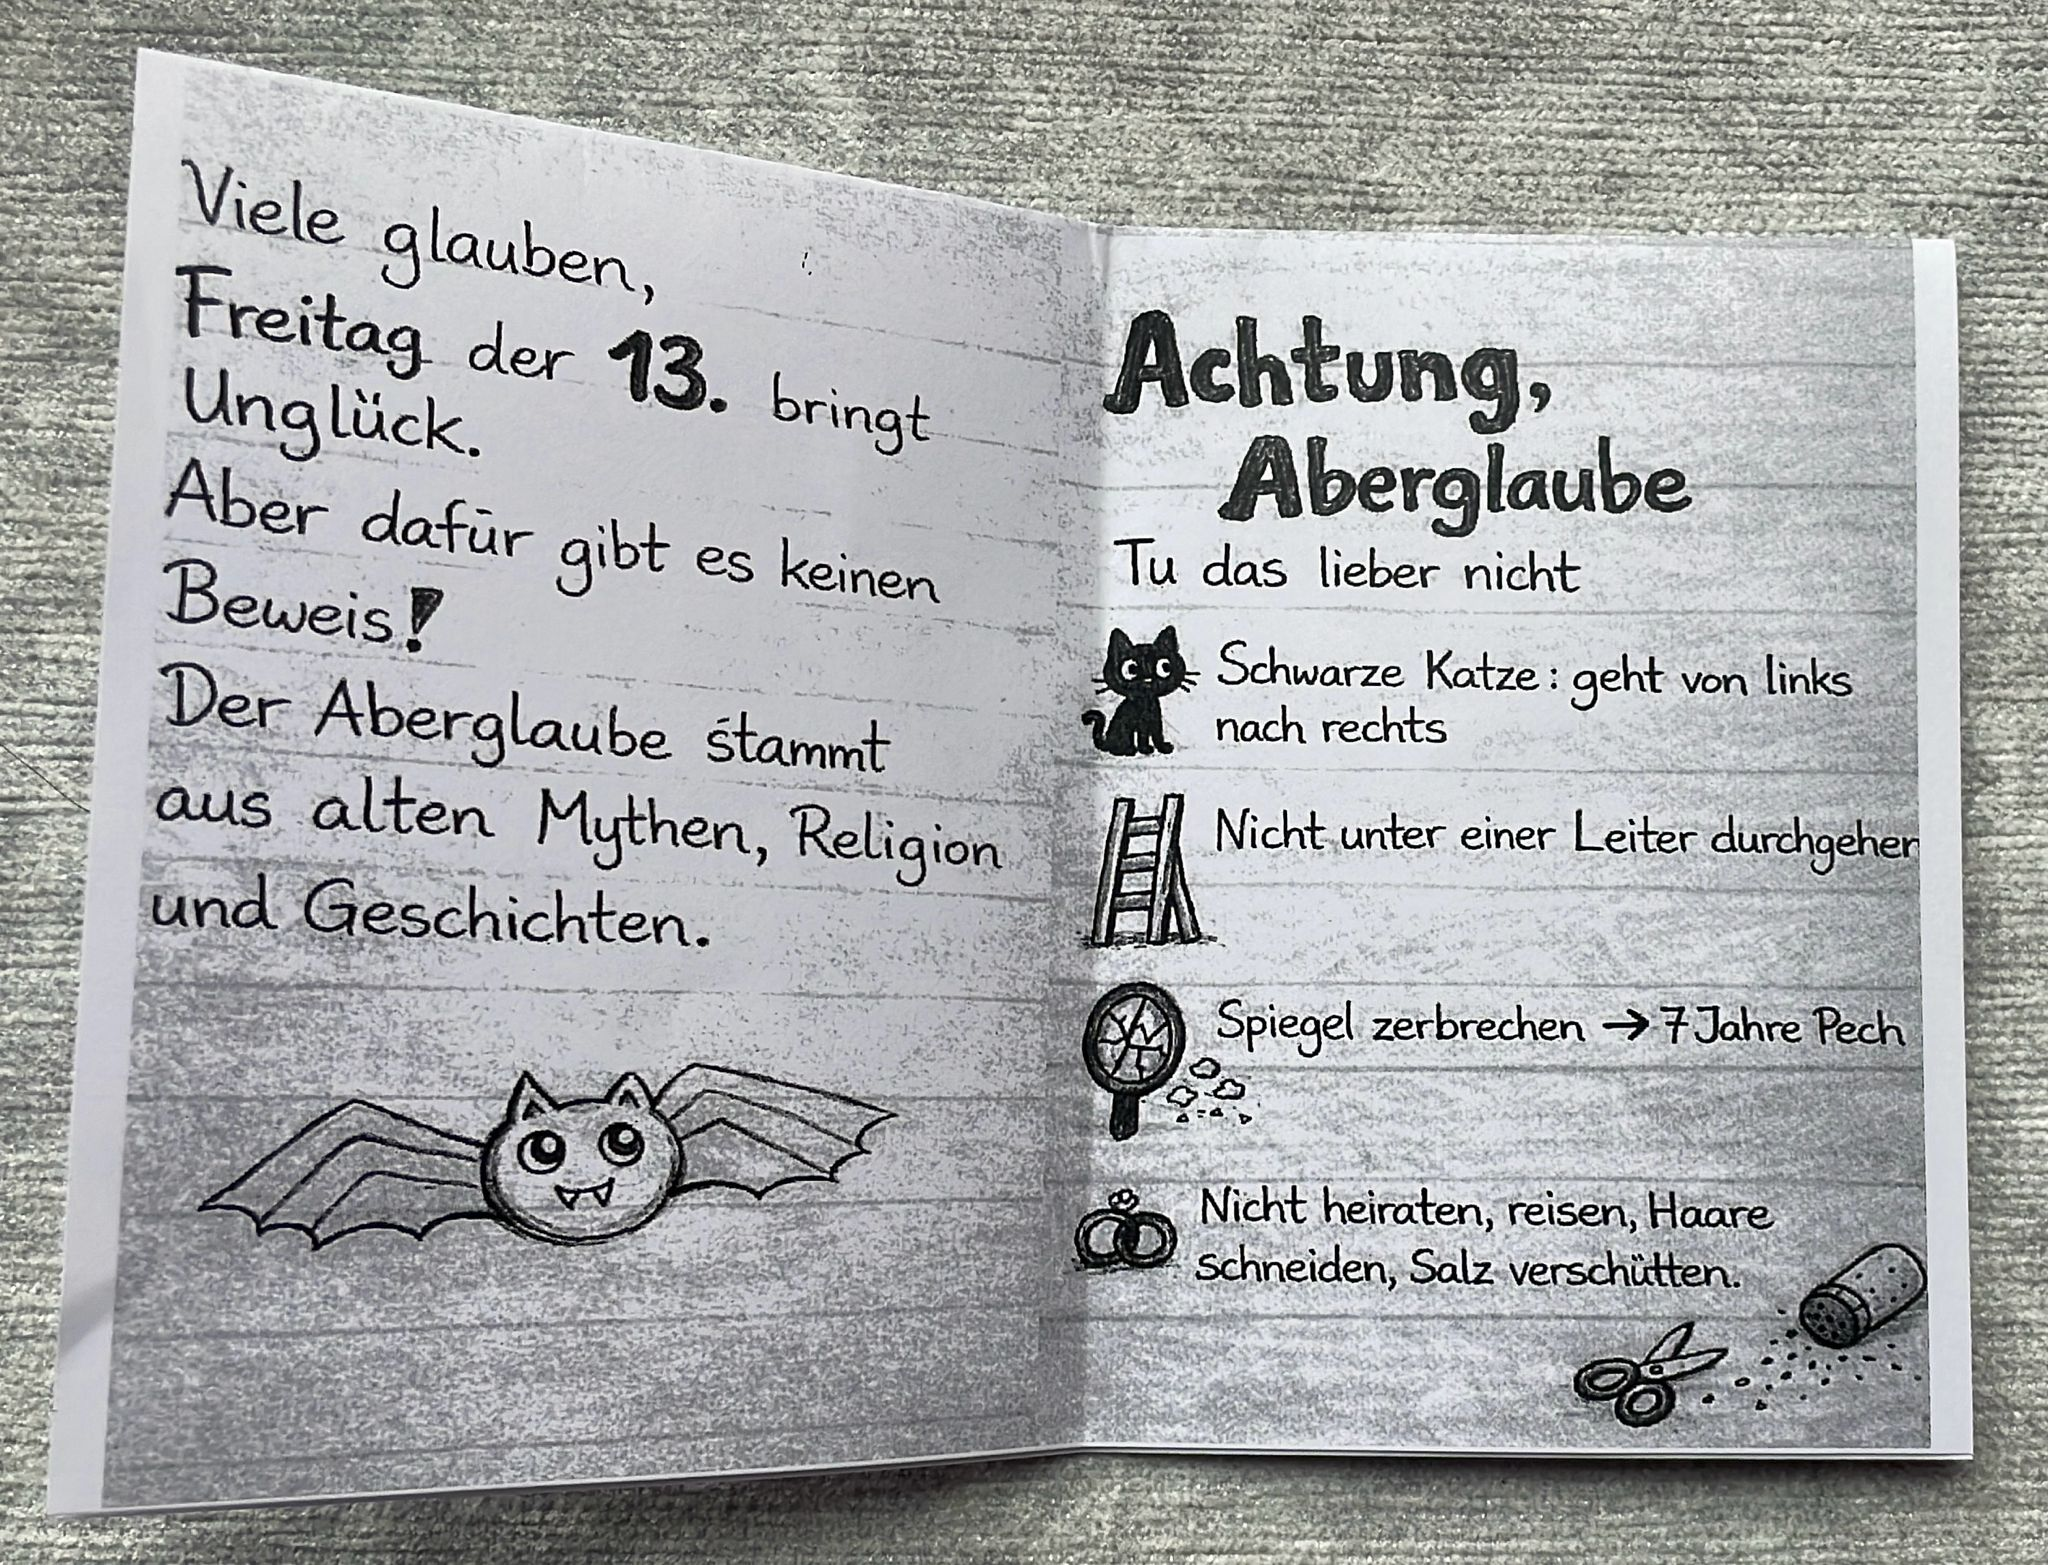 Viele glauben,
Freitag der 13. bringt
Unglück.
Aber dafür gibt es keinen
Beweis!
Der Aberglaube stammt
aus alten Mythen, Religion
und Geschichten.
Achtung,
Aberglaube
Tu das lieber nicht
Schwarze Katze: geht von links
nach rechts
Nicht unter einer Leiter durchgehen
Spiegel zerbrechen → 7 Jahre Pech
Nicht heiraten, reisen, Haare
schneiden, Salz verschütten.